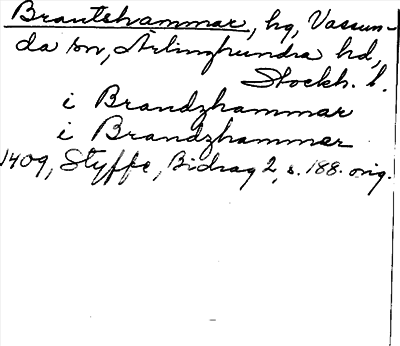 Brautshammar, hg, Vassun-
da sn, Ärlinghundra hd,
Stockh. l.
i Brandzhammar
i Brandzhammer
1409, Styffe, Bidrag 2, s. 188. orig.